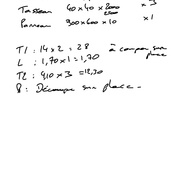 Tasseau 60 x 40 x 2000 x 3
Panneau 900 x 600 x 10 x 1
T1 : 14 x 2 = 28 à couper sur place
L : 1,70 x 1 = 1,70
T2 : 410 x 3 = 12,30
8 : Découpe sur place -